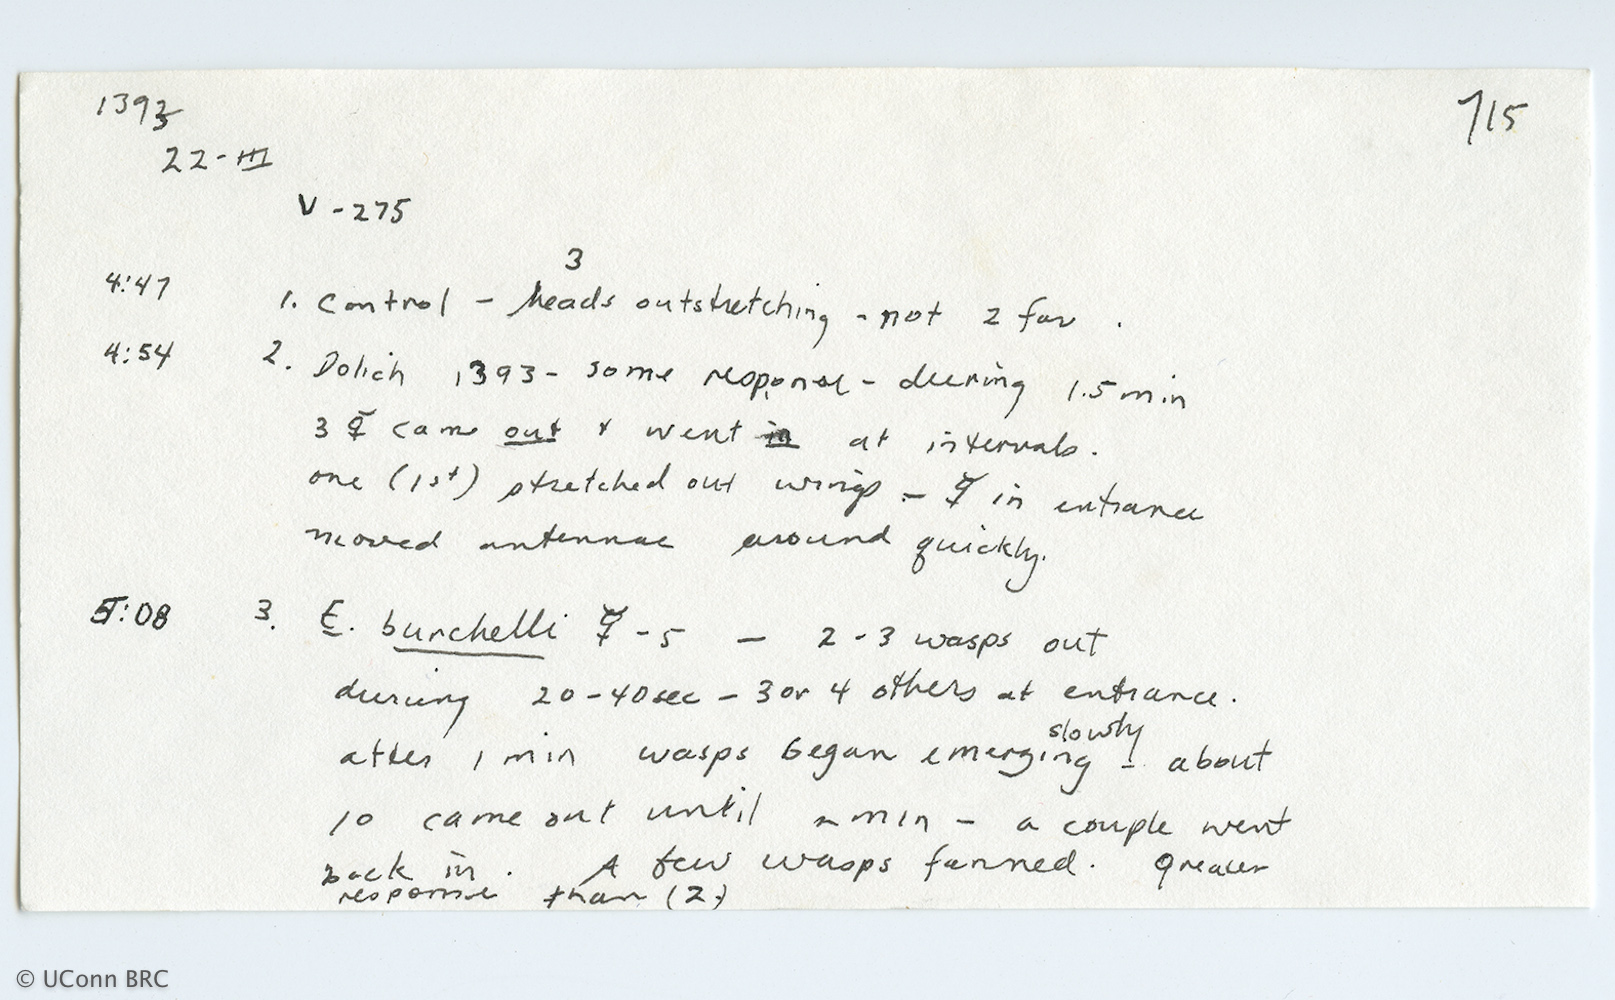 1393
715
22-III
V-275
3
4:47 1. Control - heads outstretching - not 2 far .
4:54 2. Dolich 1393- some response - during 1.5 min
3 ☿ came out + went in at intervals.
one (1st) stretched out wings - ☿ in entrance
moved antennae around quickly.
5:08 3. E. burchelli ☿ - 5 - 2-3 wasps out
during 20-40sec - 3 or 4 others at entrance.
slowly
after 1 min wasps began emerging - about
10 came out until min - a couple went
back in. A few wasps fanned. Greater
response than (2)
© UConn BRC